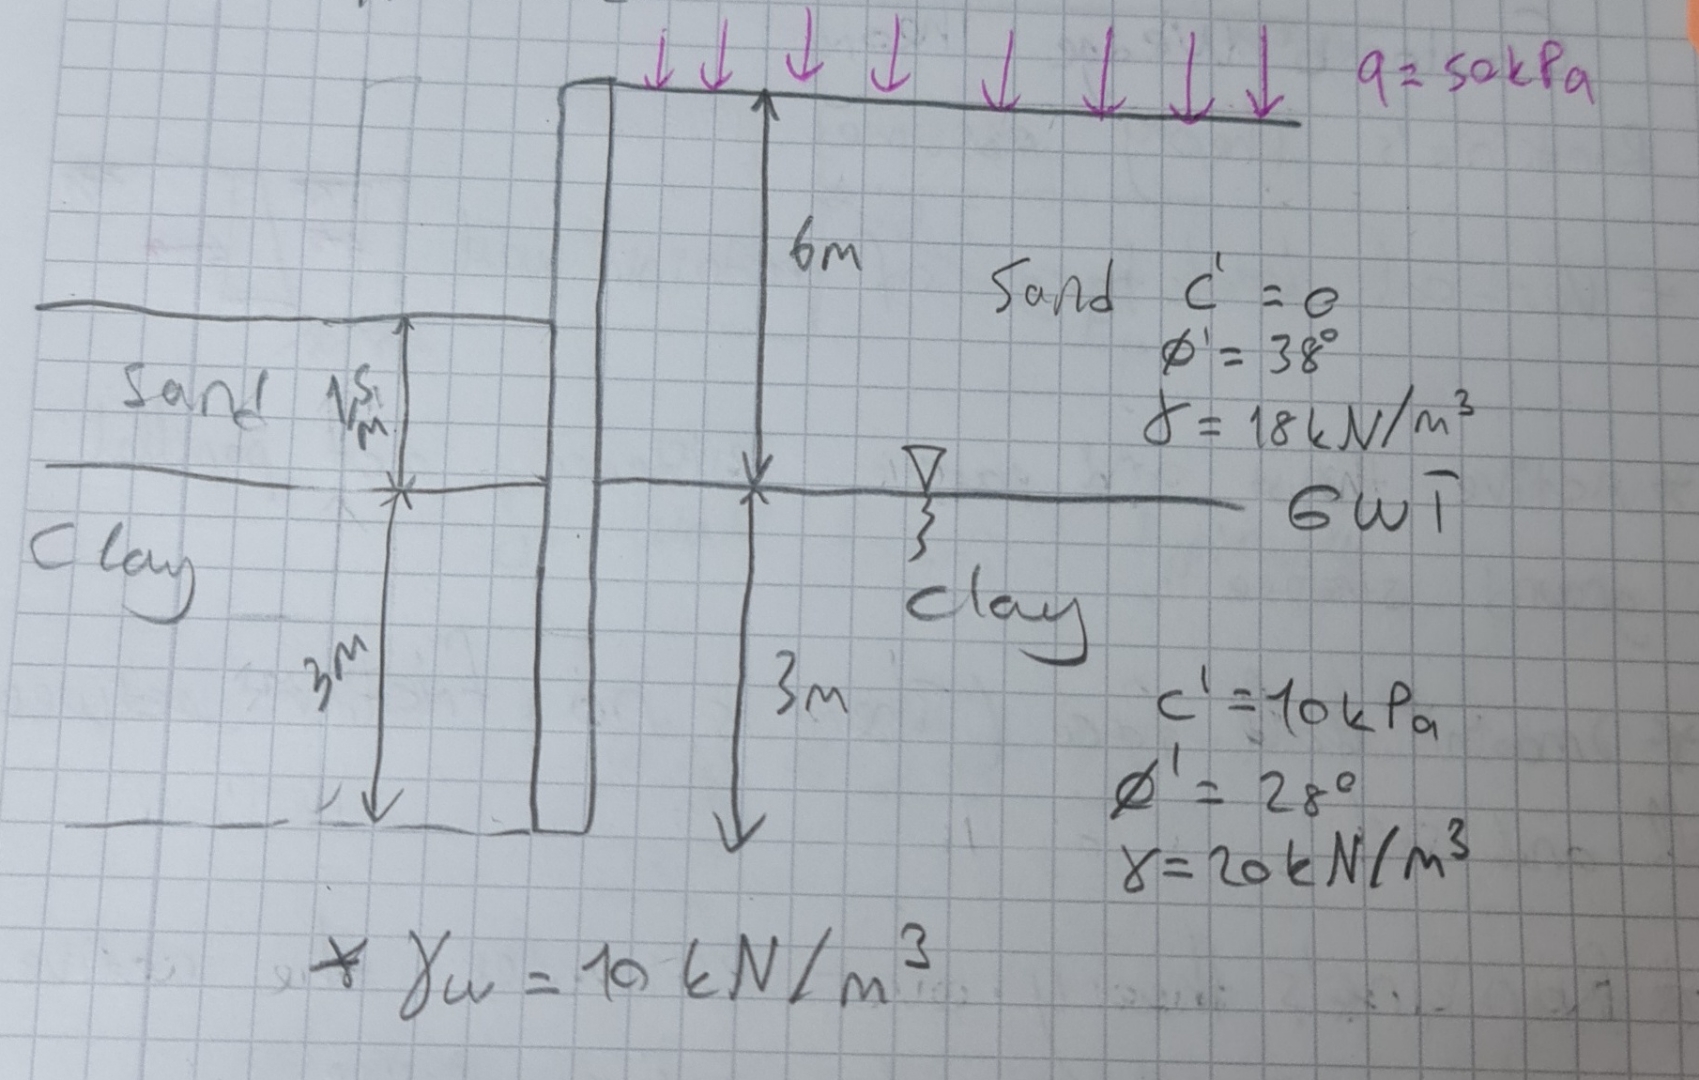 q = 50kPa
6m
Sand c' = 0
ø' = 38°
γ = 18kN/m³
Sand 1,5m
GWT
Clay
Clay
3m
3m
c' = 10kPa
ø' = 28°
γ = 20kN/m³
* γw = 10 kN/m³